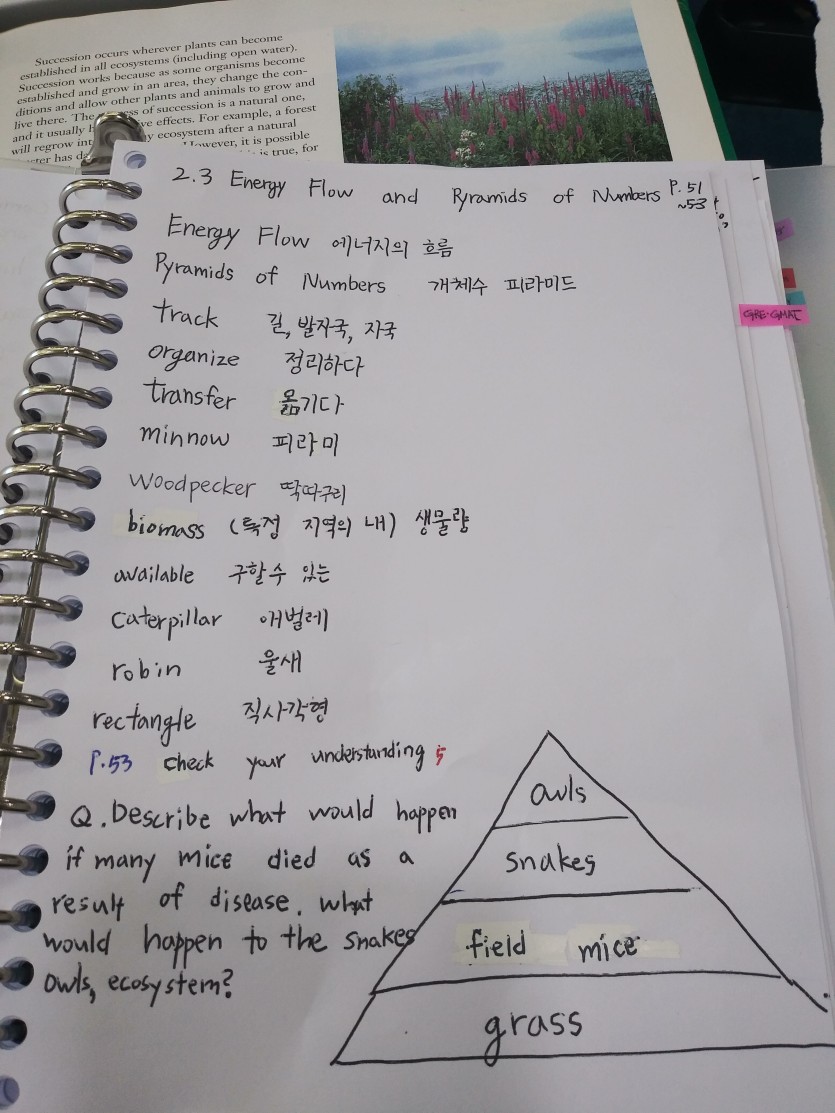 Succession occurs wherever plants can become
established in all ecosystems (including open water).
Succession works because as some organisms become
established and grow in an area, they change the con-
ditions and allow other plants and animals to grow and
live there. The ss of succession is a natural one,
and it usually ve effects. For example, a forest
will regrow in y ecosystem after a natural
has However, it is possible
is true, for
2.3 Energy Flow and Pyramids of Numbers P.51
~53
Energy Flow 에너지의 흐름
Pyramids of Numbers 개체수 피라미드
track 길, 발자국, 자국
organize 정리하다
transfer 옮기다
minnow 피라미
woodpecker 딱따구리
biomass (특정 지역의 내) 생물량
available 구할수 있는
caterpillar 애벌레
robin 울새
rectangle 직사각형
P.53 check your understanding 5
Q. Describe what would happen
if many mice died as a
result of disease. what
would happen to the snakes
owls, ecosystem?
owls
snakes
field mice
grass
GRE·GMAT